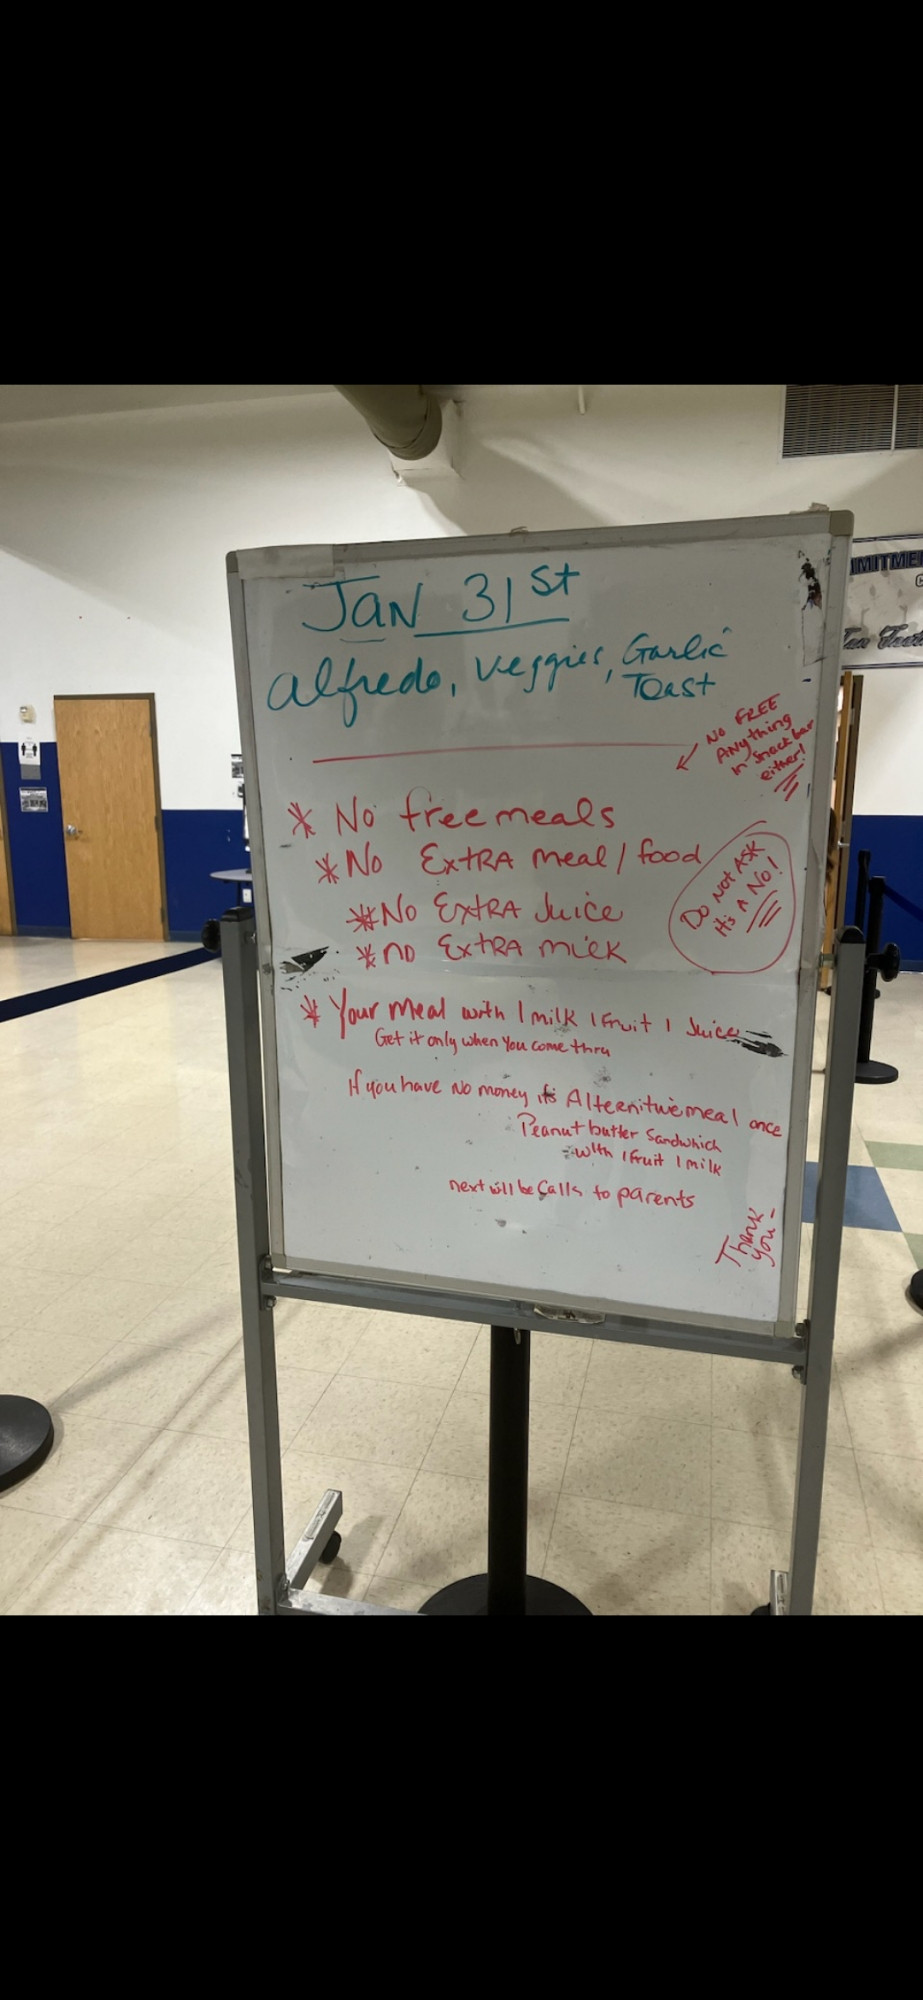 Jan 31st
Alfredo, Veggies, Garlic
Toast
No FREE
ANything
in Snack bar
either!
* No free meals
* No ExtRA meal / food
* No ExtRA Juice
* no ExtRA milk
Do Not ASK
It's A No!
* Your Meal with 1 milk 1 Fruit 1 Juice
Get it only when you come thru
If you have No money it's Alternitive meal once
Peanut butter Sandwhich
- with 1 fruit 1 milk
next will be Calls to parents
Thank
you -